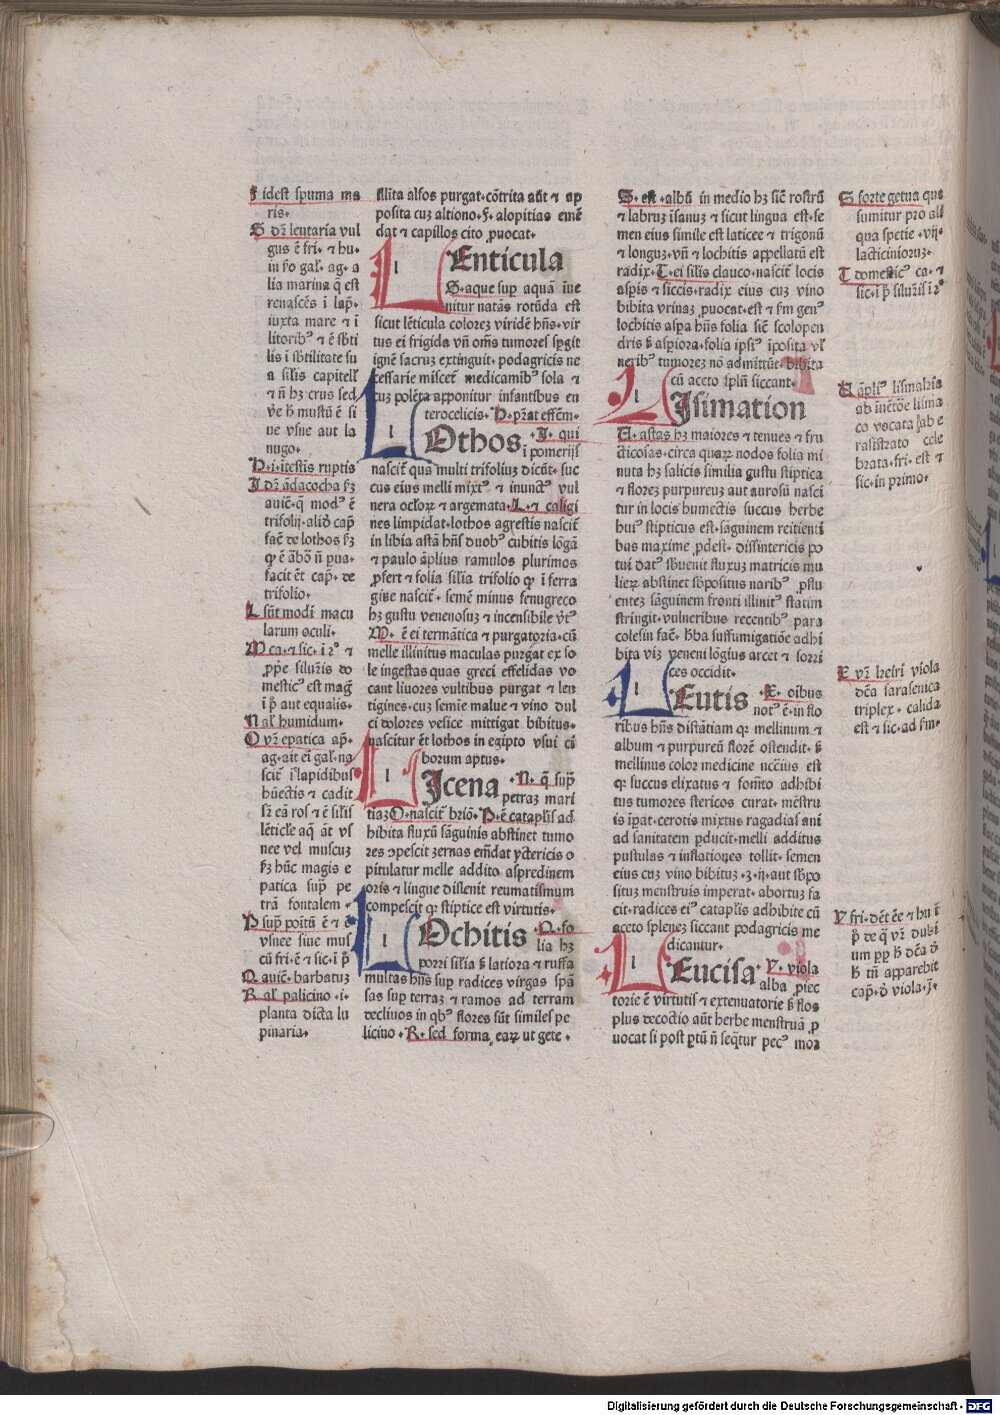 F idest spuma ma
ris·
G dr̄ lentaria vul
gus ē fri· ⁊ hu·
in fo gal· ag· a
lia marina q̄ est
renascēs ī lap̄·
iuxta mare ⁊ ī
litorib⁹ ⁊ ē sbti
lis ī sbtilitate su
a silis capitell'
⁊ n̄ hꝫ crus sed
ē si
ne vsne aut la
nugo·
H·i·itestis ruptis
I dr̄ādacocha sꝫ
auic̄·q̄ mod⁹ ē
trifolij·aliō cap̄
fac̄ de lothos sꝫ
facit ēt cap̄· de
trifolio·
L sūt modi macu
larum oculi·
M ca·⁊ sic· ī
silu̅ris do
mestic⁹ est maḡ
ī p̄ aut equalis·
N al' humidum·
O vꝛ̄ epatica ap̄·
ag·ait ei gal·na
scit̄ ī lapidibus
hūectis ⁊ cadit
sꝛ eā ros ⁊ ē silis
lēticle aq̄ āt vs
nee vel muscuꝫ
sꝫ hūc magis e
patica sup̄ pe
trā fontalem·
vsnee siue mus
cū fri·ē ⁊ sic·ī p̄
Q auic̄·barbatuꝫ
R al' palicino·i·
planta dicta lu
pinaria·
illita alfos purgat·cōtrita aūt ⁊ ap
posita cuꝫ altiono·F·alopitias emē
dat ⁊ capillos cito ꝓuocat·
LEnticula
G·aque sup aquā iue
nitur natās rotūda est
sicut lēticula coloreꝫ viridē hn̄s·vir
tus ei frigida vn̄ om̄s tumores spgit
ignē sacruꝫ extinguit·podagricis ne
cessarie miscet̄ medicamib⁹ sola ⁊
cuꝫ polēta apponitur infantibus en
terocelicis·H·p̄ꝛat effēm·
LOthos·I·qui
ī pomerijs
nascit̄ quā multi trifoliuꝫ dicūt·suc
cus eius melli mixt⁹ ⁊ inunct⁹ vul
nera oclorꝫ ⁊ argemata·L·⁊ caligi
nes limpidat·lothos agrestis nascit̄
in libia astā hn̄s duob⁹ cubitis lōgā
⁊ paulo āplius ramulos plurimos
ꝓfert ⁊ folia silia trifolio qꝫ ī serra
gine nascit̄·semē minus fenugreco
hꝫ gustu venenosuꝫ ⁊ incensibile
M·ē ei termātica ⁊ purgatoria·cū
melle illinitus maculas purgat ex so
le ingestas quas greci effelidas vo
cant liuores vultibus purgat ⁊ len
tigines·cuꝫ semie malue ⁊ vino dul
ci dolores vesice mittigat bibitus·
nascitur ēt lothos in egipto vsui ci
borum aptus·
LIcena·N·q̄ sup
petraꝫ mari
tiaꝫ O·nascit̄ briō·P·ē cataplis ad
hibita fluxū sāguinis abstinet tumo
res ɔpescit ꝫernas emēdat yctericis o
pitulatur melle addito aspredinem
oris ⁊ lingue dislenit reumatismum
compescit qꝛ stiptice est virtutis·
LOchitis·Q·fo
lia hꝫ
porri silia ꝫ latiora ⁊ ruffa
multas hn̄s sup radices virgas spā
sas sup terraꝫ ⁊ ramos ad terram
decliuos in qb⁹ flores sūt similes pe
licino·R·sed forma earꝫ ut gete·
S·est·albū in medio hꝫ sic̄ rostrū
⁊ labruꝫ īsanuꝫ ⁊ sicut lingua est·se
men eius simile est laticee ⁊ trigonū
⁊ longuꝫ·vn̄ ⁊ lochitis appellatū est
radix·T·ei silis clauco·nascit̄ locis
aspis ⁊ siccis·radix eius cuꝫ vino
bibita vrinaꝫ ꝓuocat·est ⁊ fm gen⁹
lochitis aspa hn̄s folia sic̄ scolopen
dris ꝫ aspiora·folia ipsi⁹ iposita vl'
nerib⁹ tumoreꝫ nō admittūt·bibita
cū aceto spln̄ siccant·
LIsimation
U·astas hꝫ maiores ⁊ tenues ⁊ fru
cticosas·circa quarꝫ nodos folia mi
nuta hꝫ salicis similia gustu stiptica
⁊ floreꝫ purpureuꝫ aut aurosū nasci
tur in locis humectis succus herbe
hui⁹ stipticus est·sāguinem reitienti
bus maxime ꝓdest·dissintericis po
tui dat⁹ sbuenit fluxuꝫ matricis mu
lierꝫ abstinet sbpositus narib⁹ ꝓflu
enteꝫ sāguinem fronti illinit⁹ statim
stringit·vulneribus recentib⁹ para
colesin fac̄·hba suffumigatiōe adhi
bita viꝫ veneni lōgius arcet ⁊ sorri
ces occidit·
LEutis·X·oibus
not⁹ ē·in flo
ribus hn̄s distātiam qꝛ mellinum ⁊
album ⁊ purpureū florē ostendit·ꝫ
mellinus color medicine nccius est
qꝛ succus elixatus ⁊ fomto adhibi
tus tumores stericos curat·mēstru
is īpat·cerotis mixtus ragadias ani
ad sanitatem ꝑducit·melli additus
pustulas ⁊ inflationes tollit·semen
eius cuꝫ vino bibituꝫ·ꝫ·ij·aut sbpo
situꝫ menstruis imperat·abortuꝫ fa
cit·radices ei⁹ cataplis adhibite cū
aceto spleneꝫ siccant podagricis me
dicantur·
LEucisa·Y·viola
alba ꝓiec
torie ē virtutis ⁊ extenuatorie ꝫ flos
plus decoctio aūt herbe menstruā ꝓ
uocat si post ptū n̄ seqt̄ur pec⁹ moꝛ
S forte getua que
sumitur pro ali
qua spetie·vn̄·
lacticiniorus·
T domestic⁹ ca·⁊
sic·ī p̄ siluꝛis ī
U āpli⁹ lisimakia
ab īuētōe lisima
co vocata
rasistrato cele
brata·fri·est ⁊
sic·in primo·
X vꝛ̄ keiri viola
dc̄a sarasenica
triplex·calida
est ⁊ sic·ad fm·
Y fri·dēt ēe ⁊ hu ī
p̄ de q̄ vꝛ̄ dubi
um ꝓp̄ ꝫ dc̄a
ꝫ tn̄ apparebit
cap̄·ō viola·ꝫ·
Digitalisierung gefördert durch die Deutsche Forschungsgemeinschaft · DFG